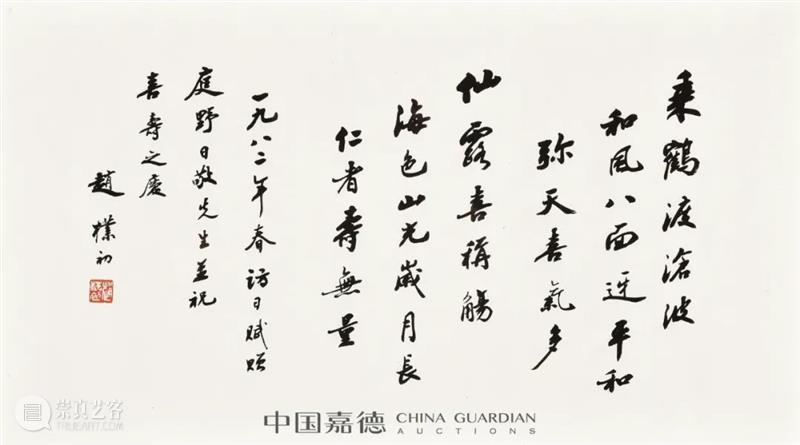 乘鶴渡滄波
和風八面迓平和
弥天喜氣多
仙露喜稱觴
海色山光歲月長
仁者壽無量
一九八二年春訪日賦贈
庭野日敬先生並祝
喜壽之慶
趙樸初
崇真艺客
中国嘉德 CHINA GUARDIAN
AUCTIONS